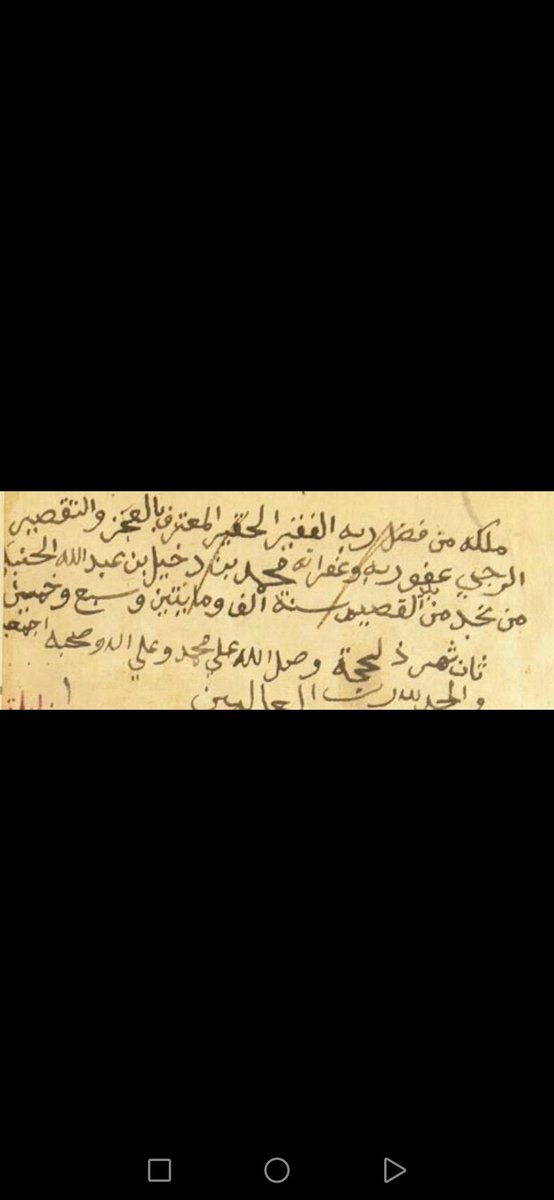 ملكه من فضل ربه الفقير الحقير المعترف بالعجز والتقصير
الرجي عفو ربه وغفرانه محمد بن دخيل بن عبد الله الحنبلي
من نجد من القصيم سنة ألف ومايتين وسبع وخمسين
ثان شهر ذلحجة وصل الله علي محمد وعلي اله وصحبه اجمعين
والحمد لله رب العالمين